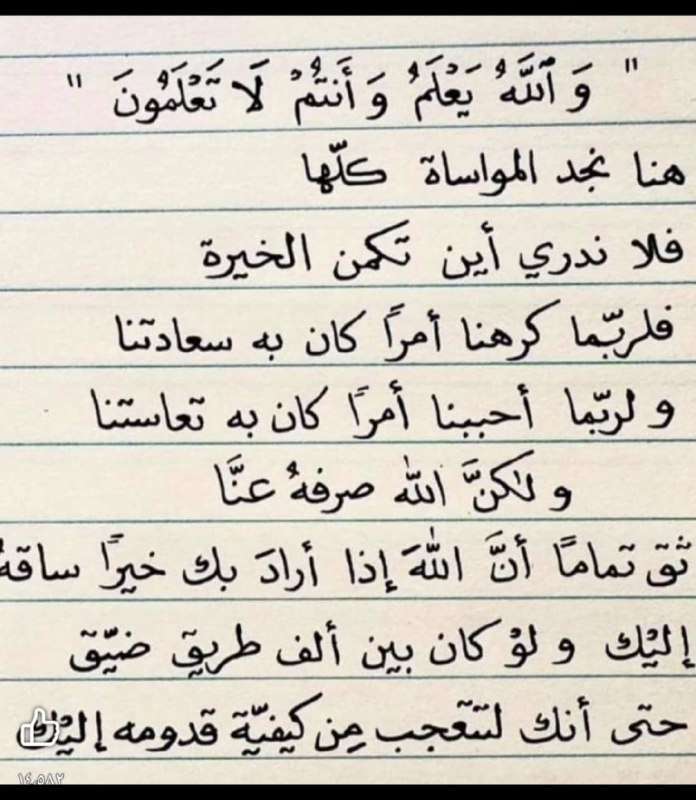 " وَ ٱللَّهُ يَعْلَمُ وَ أَنتُمْ لَا تَعْلَمُونَ "
هنا نجد المواساة كلّها
فلا ندري أين تكمن الخيرة
فلربّما كرهنا أمراً كان به سعادتنا
و لربّما أحببنا أمراً كان به تعاستنا
و لٰكنَّ الله صرفهُ عنَّا
ثق تماماً أنَّ اللهَ إذا أرادَ بك خيراً ساقهُ
إليْك و لوْ كان بين ألف طريق ضيّق
حتى أنك لتتعجب مِن كيفيّة قدومه إليْك
١٤٬٥٨٢